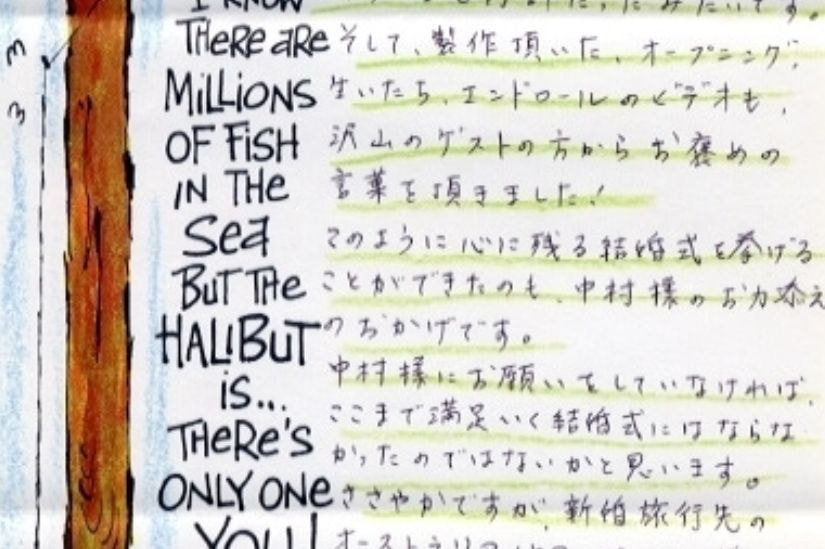 I KNOW
THERE ARE
MILLIONS
OF FISH
IN THE
SEA
BUT THE
HALIBUT
IS...
THERE'S
ONLY ONE
YOU!
そして、製作頂いた、オープニング、
生いたち、エンドロールのビデオも、
沢山のゲストの方からお褒めの
言葉を頂きました!
このように心に残る結婚式を挙げる
ことができたのも、中村様のお力添え
のおかげです。
中村様にお願いをしていなければ、
ここまで満足いく結婚式にはならな
かったのではないかと思います。
ささやかですが、新婚旅行先の